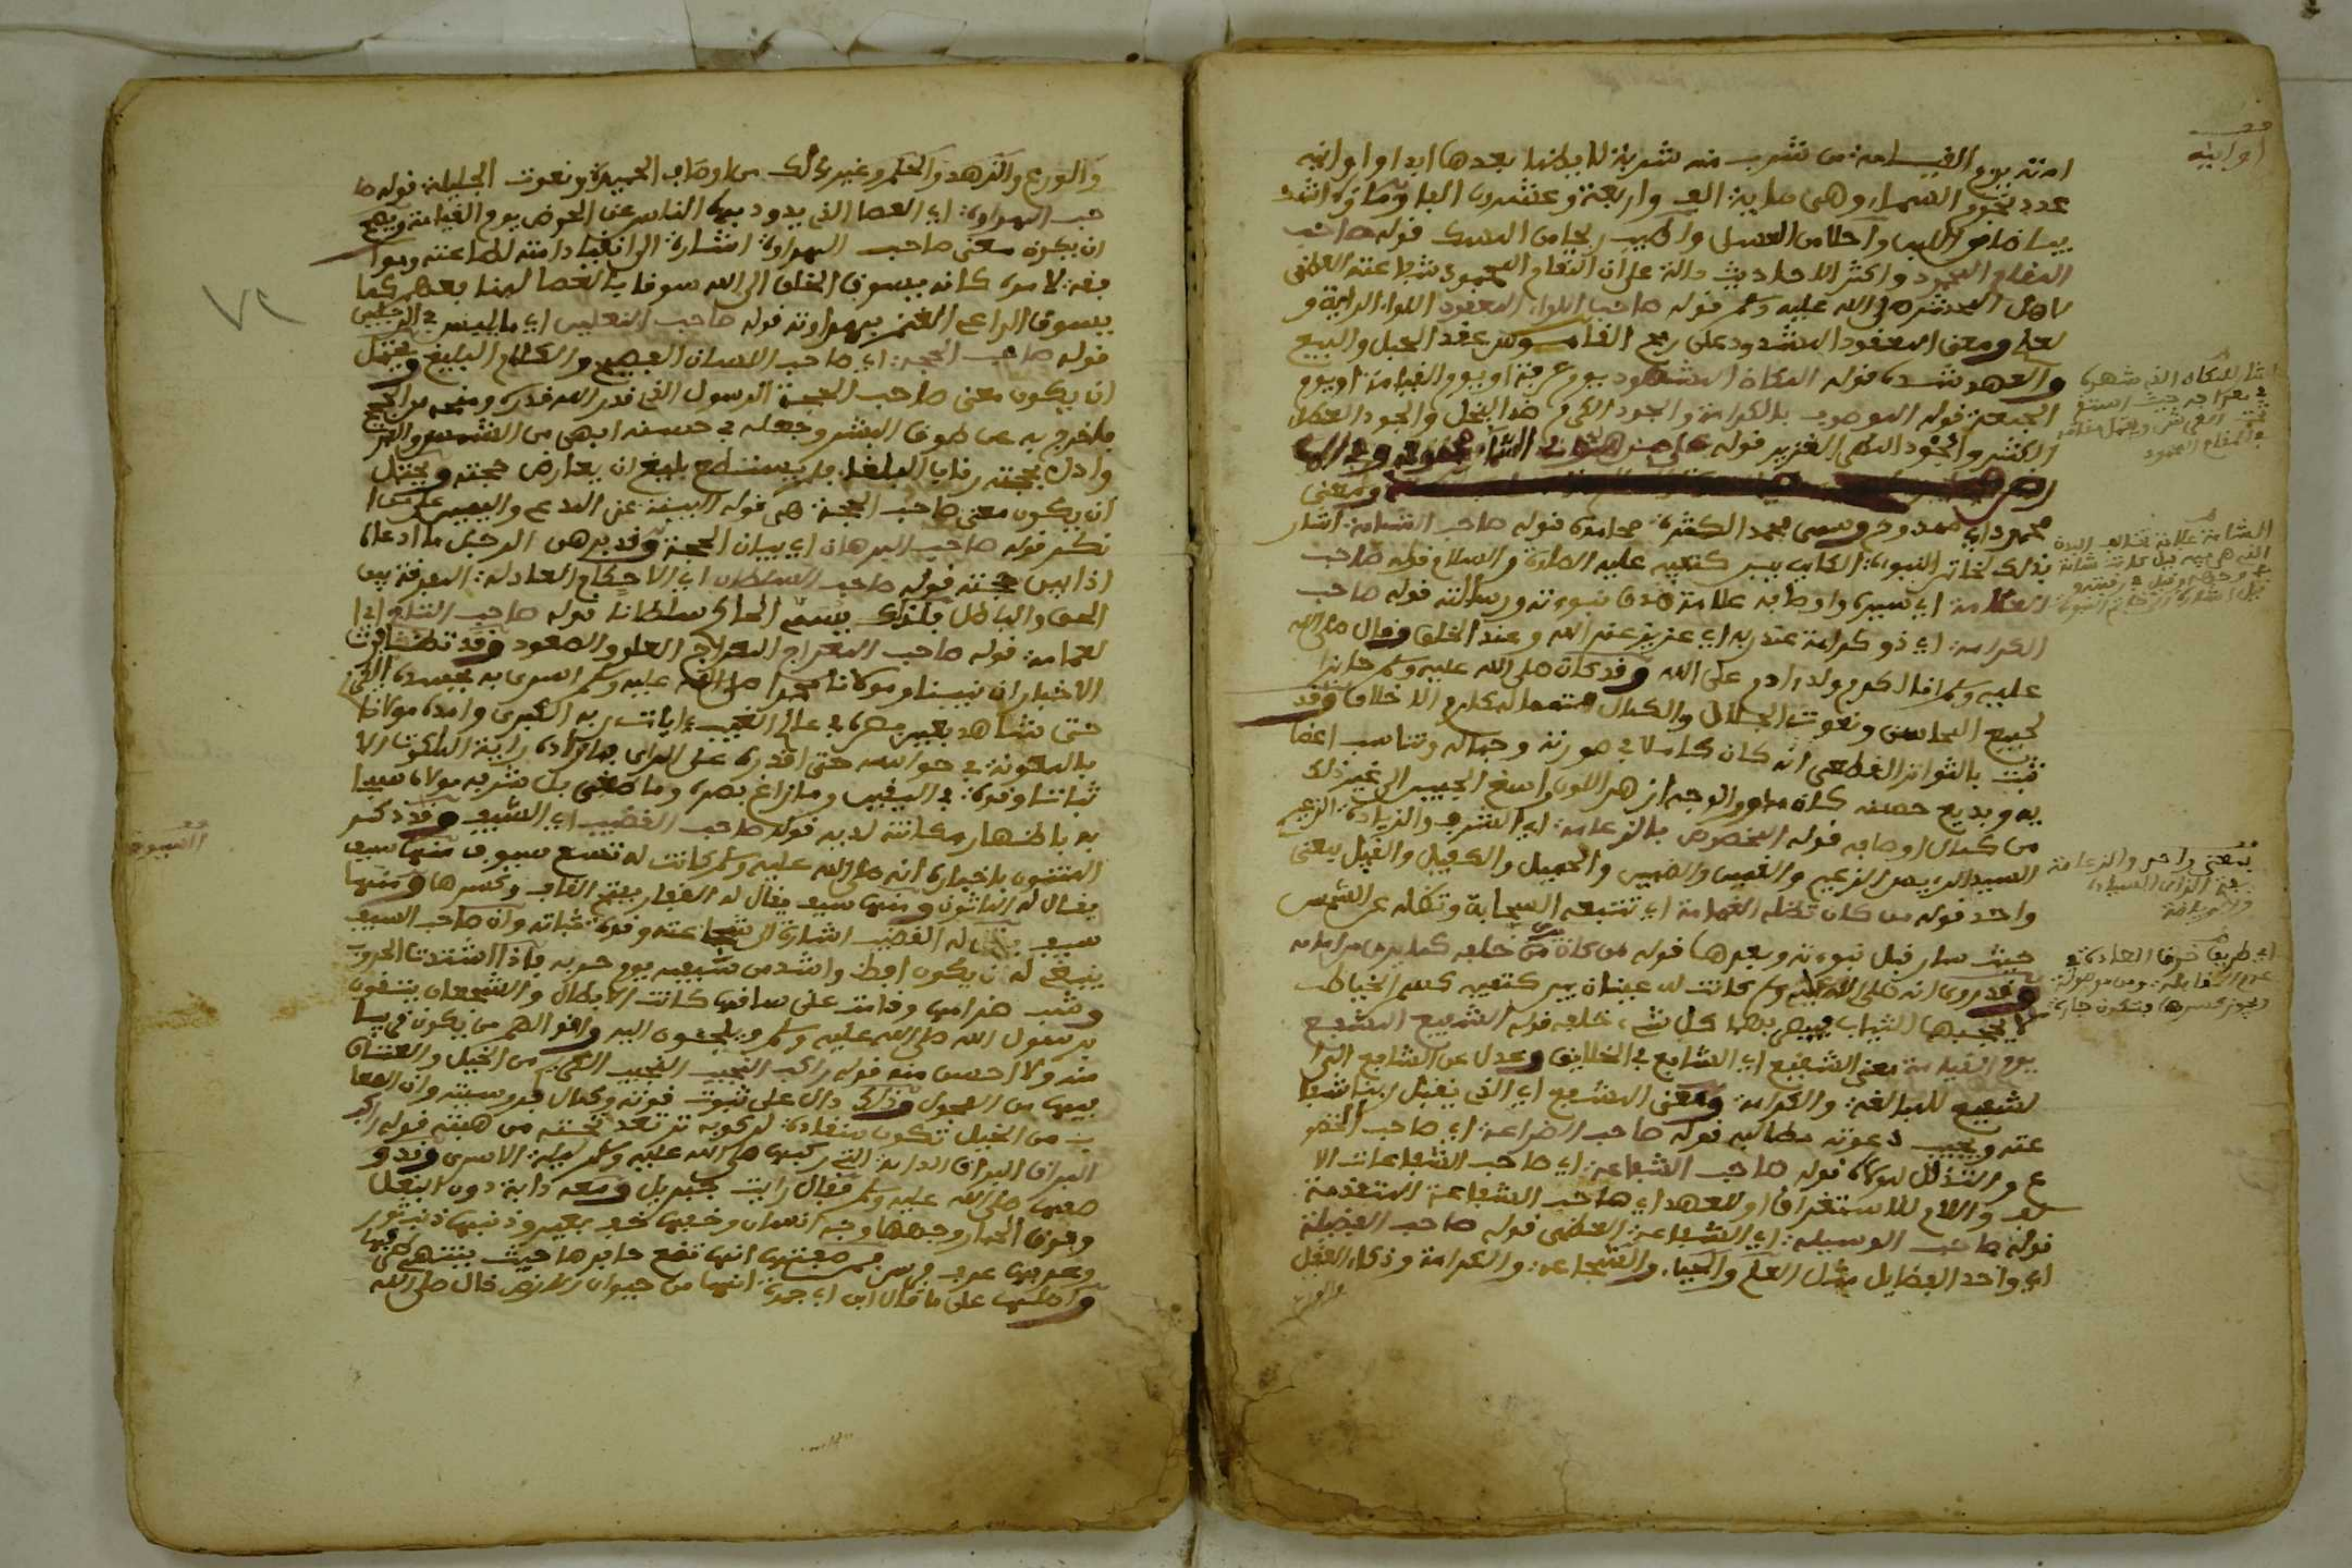 امته يوم القيامة من شرب منه شربة لا يظما بعدها ابدا واوانيه
عدد نجوم السماء وهي ماية الف واربعة وعشرون الفا وماؤه اشد
بياضا من اللبن واحلا من العسل واطيب ريحا من المسك قوله صاحب
المقام المحمود واكثر الاحاديث دالة على ان المقام المحمود شفاعته العظمى
لاهل المحشر صلى الله عليه وسلم قوله صاحب اللواء المعقود اللواء الراية و
ومعنى المعقود المشدود على رمح القاموس عقد الحبل والبيع
والعهد شده قوله المكان المشهود يوم عرفة او يوم القيامة او يوم
الجمعة قوله الموصوف بالكرم والجود الكرم ضد البخل والجود العطاء
الكثير والجود المطر الغزير قوله
ومعنى
محمود اي ممدوح وسمي محمد لكثرة محامده قوله صاحب الشامة اشار
بذلك لخاتم النبوة الكاين بين كتفيه عليه الصلاة والسلام قوله صاحب
العلامة اي سيره واوصافه علامة صدق نبوءته ورسالته قوله صاحب
الكرامة اي ذو كرامة عند ربه اي عزيز عند الله وعند الخلق وقال صلى الله
عليه وسلم انا اكرم ولد ادم على الله وقد كان صلى الله عليه وسلم حايزا
لجميع المحاسن ونعوت الجلال والكمال متمما لمكارم الاخلاق وقد
ثبت بالتواتر القطعي انه كان كاملا في صورته وجماله وتناسب اعضا
يه وبديع حسنه كان مدور الوجه ازهر اللون واسع الجبين الى غير ذلك
من كمال اوصافه قوله المخصوص بالزعامة اي الشرف والزيادة الزعيم
السيد الرييس الزعيم والقبيل والضمين والحميل والكفيل والقبيل بمعنى
واحد قوله من كان تظله الغمامة اي تتبعه السحابة وتظله عن الشمس
حيث سار قبل نبوءته وبعدها قوله من كان يرى من خلفه كما يرى من امامه
وقد روي انه صلى الله عليه وسلم كانت له عينان بين كتفيه كسم الخياط
لا يحجبها الثياب فيبصر بهما كل شيء خلفه قوله الشفيع المشفع
يوم القيامة معنى الشفيع اي الشافع في الخلايق وعدل عن الشافع الى ا
لشفيع للمبالغة والكرامة ومعنى المشفع اي الذي يقبل ربنا شفا
عته ويجيب دعوته مطالبه قوله صاحب الضراعة اي صاحب الخضو
ع والتذلل لمولاه قوله صاحب الشفاعة اي صاحب الشفاعات الا
واللام للاستغراق او للعهد اي صاحب الشفاعة المتقدمة
قوله صاحب الوسيلة اي الشفاعة العظمى قوله صاحب الفضيلة
اي واحد الفضايل مثل العلم والحياء والشجاعة والكرامة وذكاء العقل
والورع
اوانيه
والورع والزهد والحلم وغير ذلك من اوصاف الحميدة ونعوت الجليلة قوله صا
حب الهراوة اي العصا الذي يذود بها الناس عن الحوض يوم القيامة ويصح
ان يكون معنى صاحب الهراوة اشارة الى انقياد امته لطاعته وموا
فقة لامره كانه يسوق الخلق الى الله سوقا بالعصا لينا بعضهم كما
يسوق الراعي الغنم بهراوته قوله صاحب النعلين اي ما يلبس في الرجلين
قوله صاحب الحجة اي صاحب اللسان الفصيح والكلام البليغ ويحتمل
ان يكون معنى صاحب الحجة الرسول الذي قدر الله قدره ومنحه
فاخرج به عن طوق البشر وجعله في حسنه ابهى من الشمس والقمر
واذل بحجته رقاب البلغاء فلم يستطع بليغ ان يعارض حجته ويحتمل
ان يكون معنى صاحب الحجة هي قوله البينة على المدعي واليمين على من ا
نكر قوله صاحب البرهان اي بيان الحجة وقد برهن الرجل ما ادعاه
اذا بين حجته قوله صاحب السلطان اي الاحكام العادلة المفرقة بين
الحق والباطل فلذلك يسمى الحاكم سلطانا قوله صاحب التاج اي ا
لعمامة قوله صاحب المعراج المعراج العلو والصعود وقد تظافرت
الاخبار ان نبينا ومولانا محمدا صلى الله عليه وسلم اسري به بجسده الكريم
حتى شاهد بعين بصره في عالم الغيب ءايات ربه الكبرى وامده مولانا
بالمعونة في حواسه حتى اقدره على المراي فما زاده رؤية الملكوت الا
ثباتا وقوة في اليقين وما زاغ بصره وما طغى بل شرفه مولاه سيدا
به باظهار مكانته لديه قوله صاحب القضيب اي السيف وقد ذكر
المعتنون باخباره انه صلى الله عليه وسلم كانت له تسع سيوف منها سيف
يقال له الماثور ومنها سيف يقال له الفقار بفتح الفاء وكسرها ومنها
سيف يقال له القضيب اشارة الى شجاعته وقوة ثباته وان صاحب السيف
ينبغي له ان يكون اقطع واشد من سيفه يوم حربه فاذا اشتدت الحرب
وشب ضرامها وقامت على ساقها كانت الابطال والشجعان يتقون
برسول الله صلى الله عليه وسلم ويلجئون اليه واقواهم من يكون قريبا
منه ولا احسن منه قوله راكب النجيب النجيب الكريم من الخيل والعتاق
منها من الفحول وذلك دال على ثبوت قوته وكمال فروسيته وان الصعا
ب من الخيل تكون منقادة لركوبه ترتعد تحته من هيبته قوله راكب
البراق البراق الدابة التي ركبها صلى الله عليه وسلم ليلة الاسرى وقد و
صفها صلى الله عليه وسلم فقال رايت جبريل ومعه دابة دون البغل
وفوق الحمار وجهها وجه انسان وخفها خف بعير وذنبها ذنب ثور
وعرفها عرف فرس ومن صفتها انها تضع حافرها حيث ينتهي طرفها
واصلها على ما قال ابن ابي جمرة انها من حيوان الارض قال صلى الله
السيوف